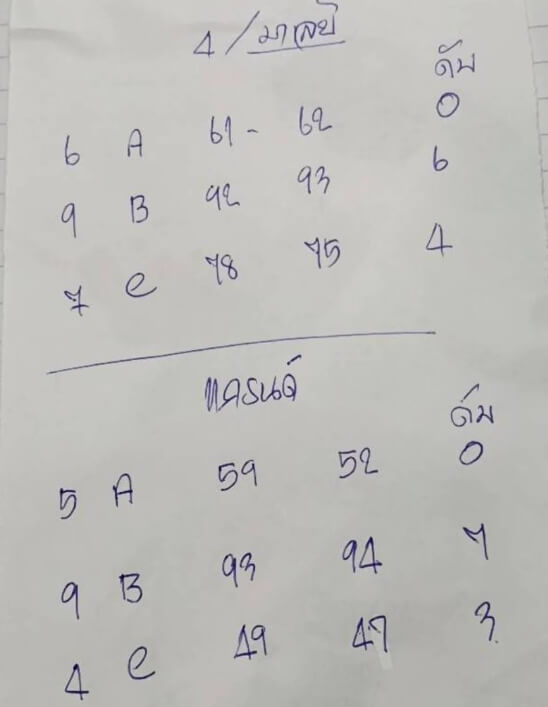 4 / มาเลย์
ดับ
6 A 61 - 62 0
9 B 92 93 6
7 C 78 75 4
แกรนด์
ดับ
5 A 59 52 0
9 B 93 94 7
4 C 49 47 3